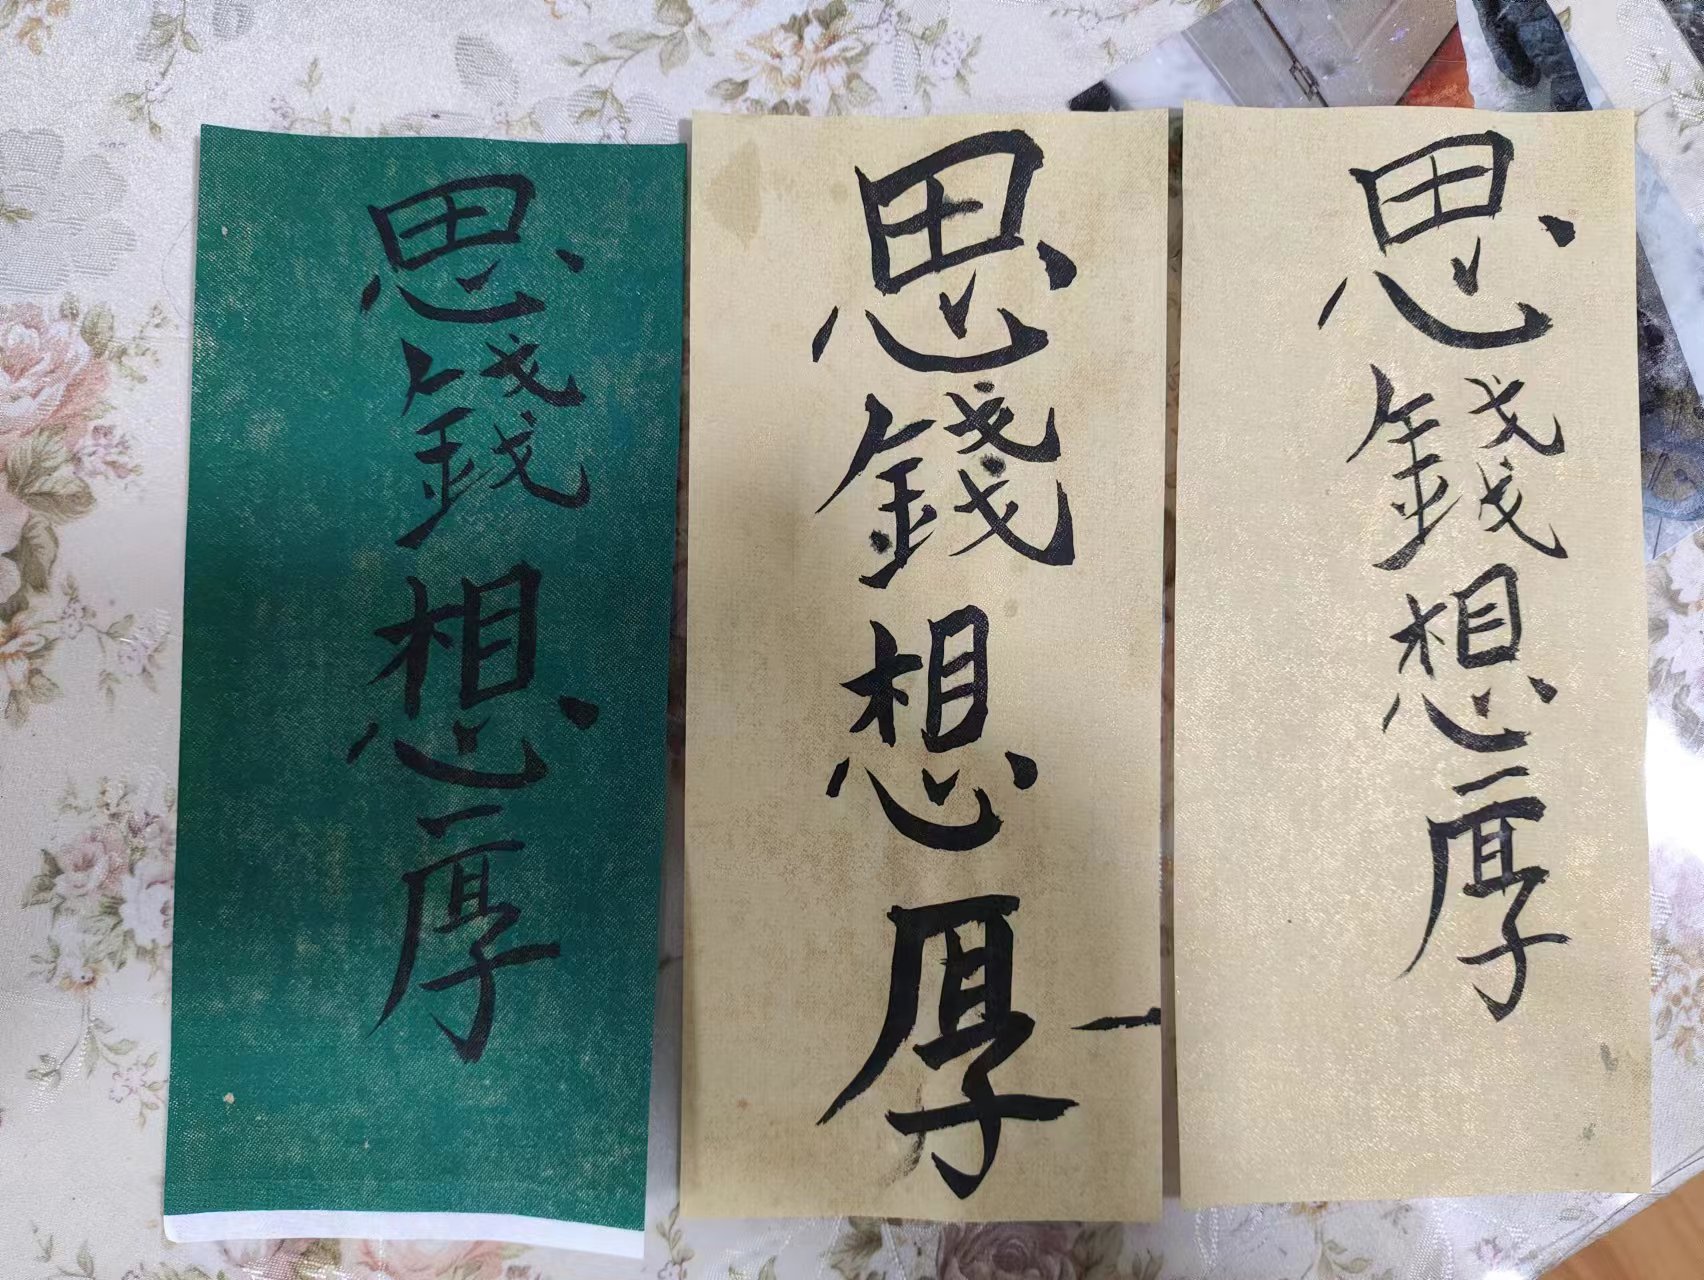 思錢想厚
思錢想厚
思錢想厚